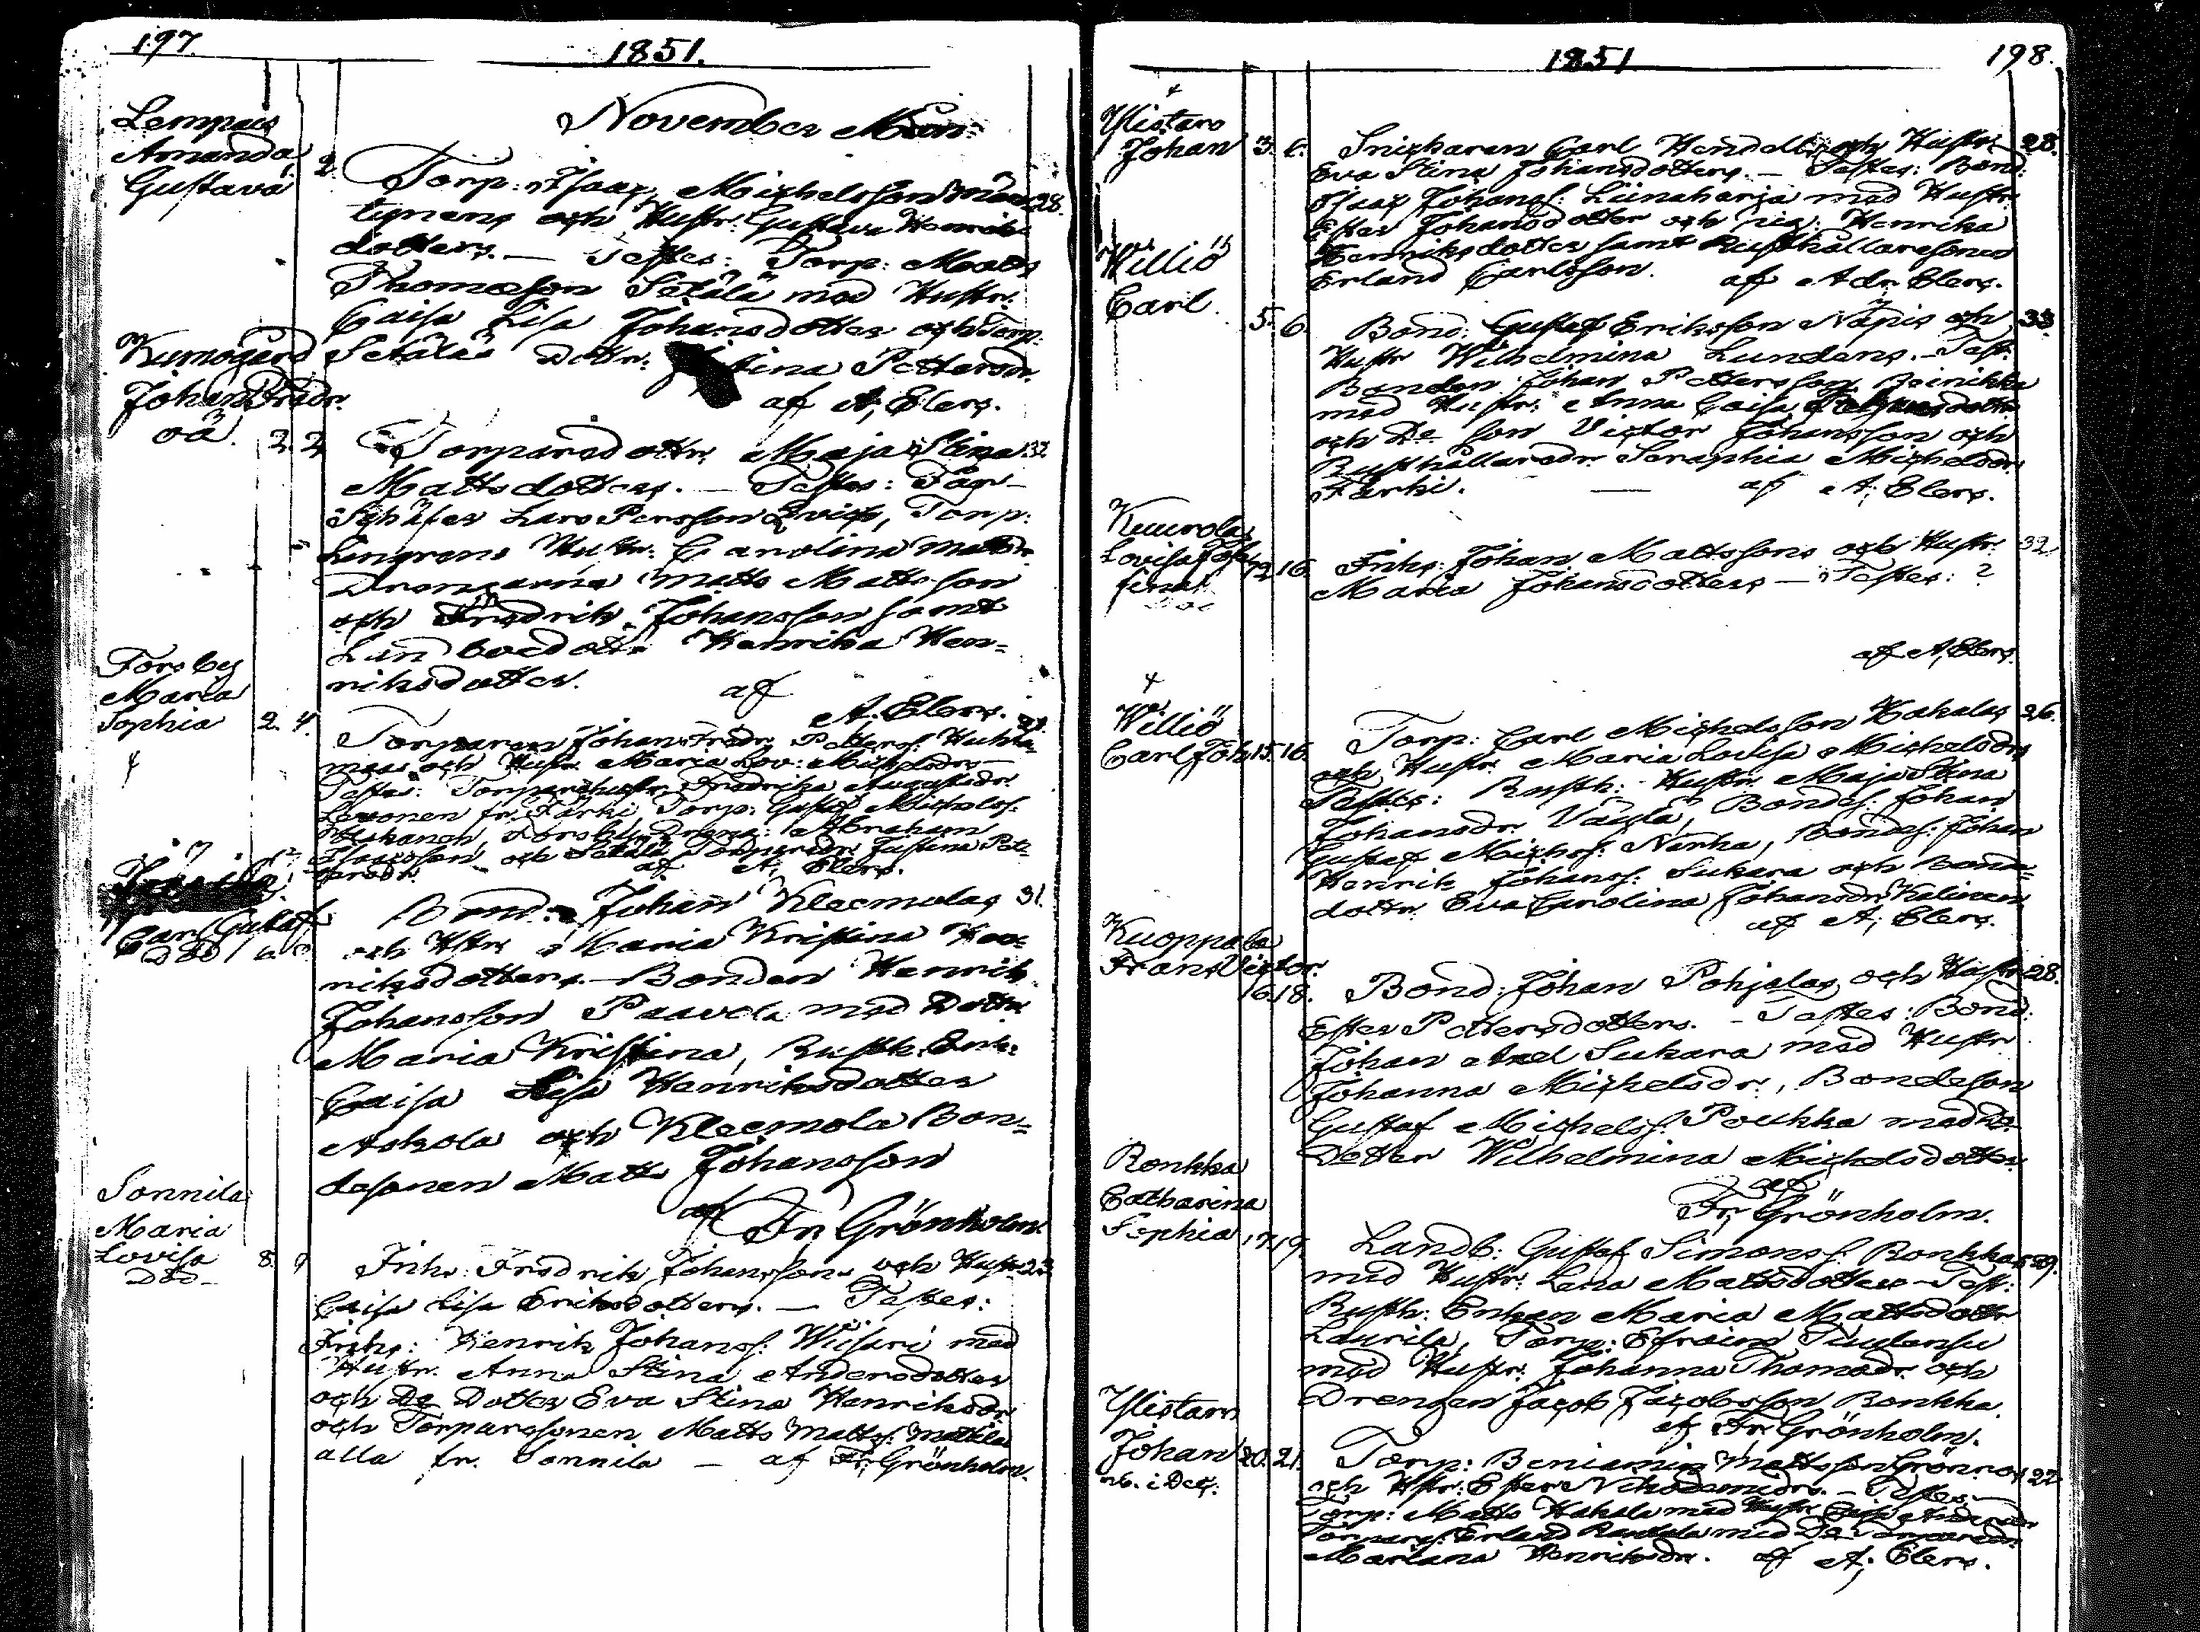 197.
1851.
November Mån:
Lempais
Amanda
Gustava 1. 2.
Torp: Isaac Michelsson 28.
och Hustr. Gustava Henriks
dotters. — Testes: Torp: Matts
Thomasson Setälä med Hustr.
Caisa Lisa Johansdotter och Torp:
Setäläs Dottr. Stina Pettersdr.
af A. Elers.
Kumogård
Johan Fredr.
oä. 2. 2.
Torparedottr. Maja Stina 32.
Mattsdotters. — Testes: Får-
Schäfer Lars Persson Qvist, Torp:
Lingrens Hustr. Carolina Mattsdr
Drengarna Matts Mattsson
och Fredrik Johansson samt
Landboedottr. Henrika Hen-
riksdotter. af
A. Elers.
Forsby
Maria
Sophia 2. 4.
Torparen Johan Fredr. Petterss.
och Hustr. Maria Lov: Michelsdrs
Testes: Torparehustr. Fredrika Augustadr.
fr. Torp: Gustaf Michelss:
Forsby Dreng: Abraham
Isaacsson och Setälä Torparedr. Justina Pet-
tersdr. af A. Elers.
Carl Gustaf
Död 1. 2.
Bond: Johan Kleemolas 31.
och Hstr. Maria Kristina Hen-
riksdotters. — Bonden Henrik
Johansson Paavola med Dottr
Maria Kristina, Rusth. Enk:
Caisa Lisa Henriksdotter
Askola och Kleemola Bon-
desonen Matts Johansson
af Fr. Grönholm.
Sonnila
Maria
Lovisa
Död 8. 9
Inhs. Fredrik Johanssons och Hustr.
Caisa Lisa Eriksdotters. — Testes:
Inhs: Henrik Johanss: Wiisari med
Hustr. Anna Stina Andersdotter
och De Dotter Eva Stina Henriksdr
och Torparesonen Matts Mattss: Mattila
alla fr. Sonnila — af Fr. Grönholm.
1851
198.
Ylistaro
Johan 3. 6.
Snickaren Carl Hendell och Hustr. 28.
Eva Stina Johansdotters. — Testes: Bond:
Isaac Johanss: Liinaharja med Hustr.
Ester Johansdotter och pig: Henrika
Henriksdotter samt Rusthållaresonen
Erland Carlsson. af Adr. Elers.
Williö
Carl. 5. 6.
Bond: Gustaf Eriksson Näpis och 33.
Hustr Wilhelmina Lundens. — Test:
Bonden Johan Pettersson
med Hustr. Anna Caisa
och De Son Victor Johansson och
Rusthållaredr. Seraphia Michelsdr
Färki. — af A. Elers.
Kuurola
Lovisa Jose-
fina
Död 12. 16.
Inhs: Johan Mattssons och Hustr. 32.
Maria Johansdotters — Testes: ?
af A. Elers.
Williö
Carl Joh. 15. 16.
Torp: Carl Michelsson Hakalas 26.
och Hustr. Maria Lovisa Michelsdrs
Testes: Rusth: Hustr. Maja Stina
Johansdr. Väylä, Bondes: Johan
Gustaf Michelss: Nirkka, Bondes: Johan
Henrik Johanss: Sukara och Bonde-
dottr. Eva Carolina Johansdr.
af A. Elers.
Kuoppala
Frans Victor.
16. 18.
Bond: Johan Pohjalas och Hustr 28.
Ester Pettersdotters. — Testes: Bond:
Johan Axel Sukara med Hustr
Johanna Michelsdr., Bondeson
Gustaf Michelss: Poukka med De
Dotter Wilhelmina Michelsdotter
af
Fr. Grönholm.
Ronkka
Catharina
Sophia 17. 19.
Landb: Gustaf Simonss: Ronkka 29.
med Hustr. Lena Mattsdotter — Test:
Rusth: Enkan Maria Mattsdottr
Laurila, Torp: Efraim
med Hustr. Johanna Thomasdr. och
Drengen Jacob Jacobsson Ronkka.
af Fr. Grönholm.
Ylistaro
Johan 20. 21.
nb. i Dec:
Torp: Beniamin Mattsson Grönroos 27.
och Hstr. Ester Nikodemidrs. — Testes:
Torp: Matts Hakala med Hustr Caisa Andersdr
Torpares: Erland Rantala med
Mariana Henriksdr. af A. Elers.